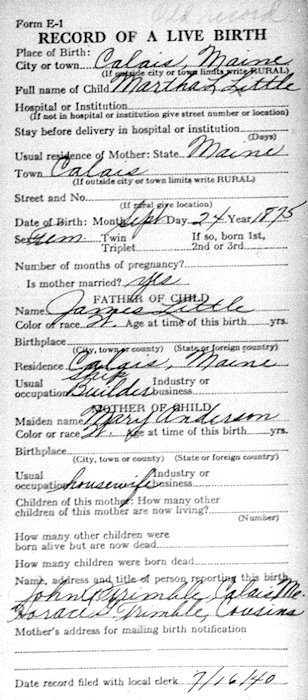 Old record
Form E-1
RECORD OF A LIVE BIRTH
Place of Birth:
City or town Calais, Maine
(If outside city or town limits write RURAL)
Full name of Child Martha L Little
Hospital or Institution
(If not in hospital or institution give street number or location)
Stay before delivery in hospital or institution
(Days)
Usual residence of Mother: State Maine
Town Calais
(If outside city or town limits write RURAL)
Street and No.
(If rural give location)
Date of Birth: Month Sept Day 24 Year 1875
Sex Fem Twin / Triplet If so, born 1st, 2nd or 3rd
Number of months of pregnancy?
Is mother married? yes
FATHER OF CHILD
Name James Little
Color or race W. Age at time of this birth yrs.
Birthplace
(City, town or county) (State or foreign country)
Residence Calais, Maine
Usual occupation Ship Builder Industry or business
MOTHER OF CHILD
Maiden name Mary Anderson
Color or race W. Age at time of this birth yrs.
Birthplace
(City, town or county) (State or foreign country)
Usual occupation housewife Industry or business
Children of this mother: How many other
children of this mother are now living?
(Number)
How many other children were
born alive but are now dead
How many other children were born dead
Name, address and title of person reporting this birth
John Trimble, Calais Me.
Horace Trimble, Cousins
Mother's address for mailing birth notification
Date record filed with local clerk 7/16/40